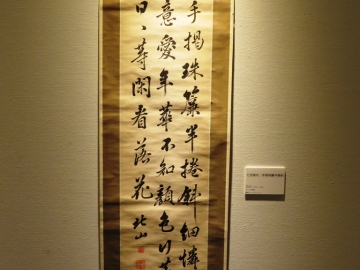 手揭珠簾半捲斜細憐
意愛年華不知顏色
日〻等閑看落花 北山